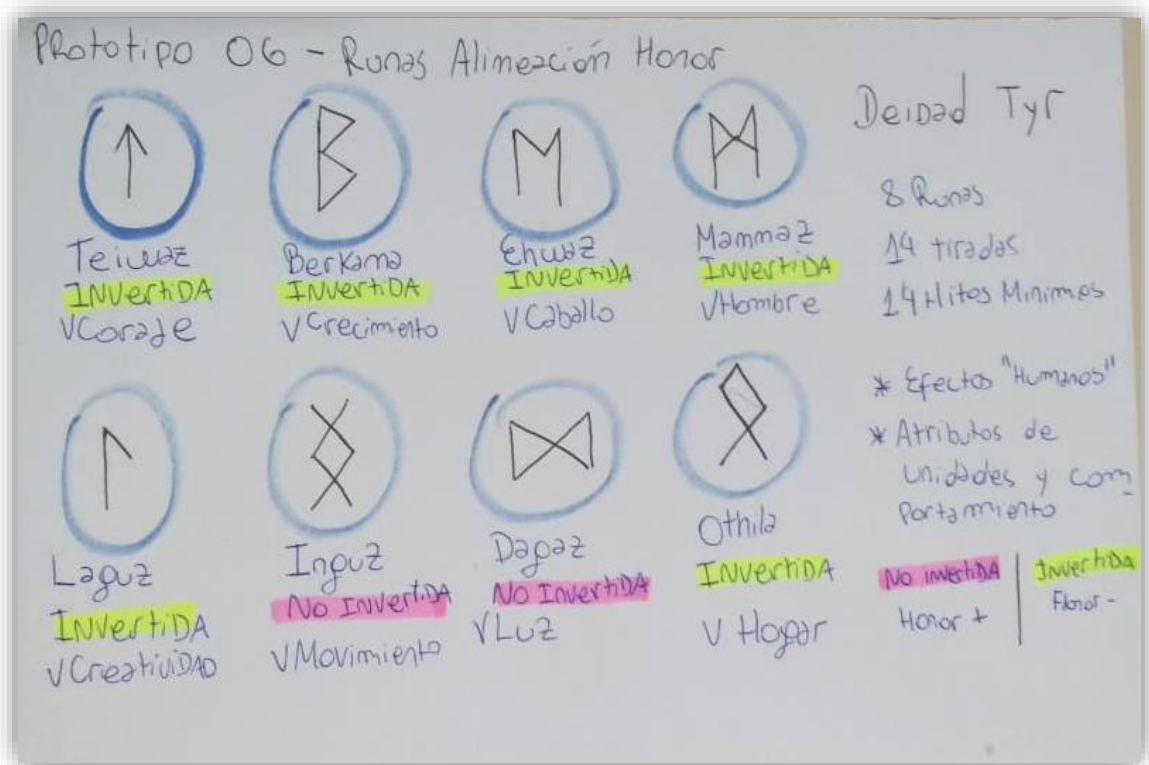 Prototipo 06 - Runas Alineación Honor
Teiwaz
INVertiDA
VCoraje
Berkama
INVertiDA
VCrecimiento
Ehwaz
INVertiDA
VCaballo
Mammaz
INVertiDA
VHombre
Laguz
INVertiDA
VCreatiVIDAD
Inguz
No InvertiDA
VMovimiento
Dagaz
No InvertiDA
VLuz
Othila
INVertiDA
V Hogar
Deidad Tyr
8 Runas
14 tiradas
14 Hitos Minimos
* Efectos "Humanos"
* Atributos de
Unidades y com
portamiento
No invertiDA
Honor +
InvertiDA
Honor -